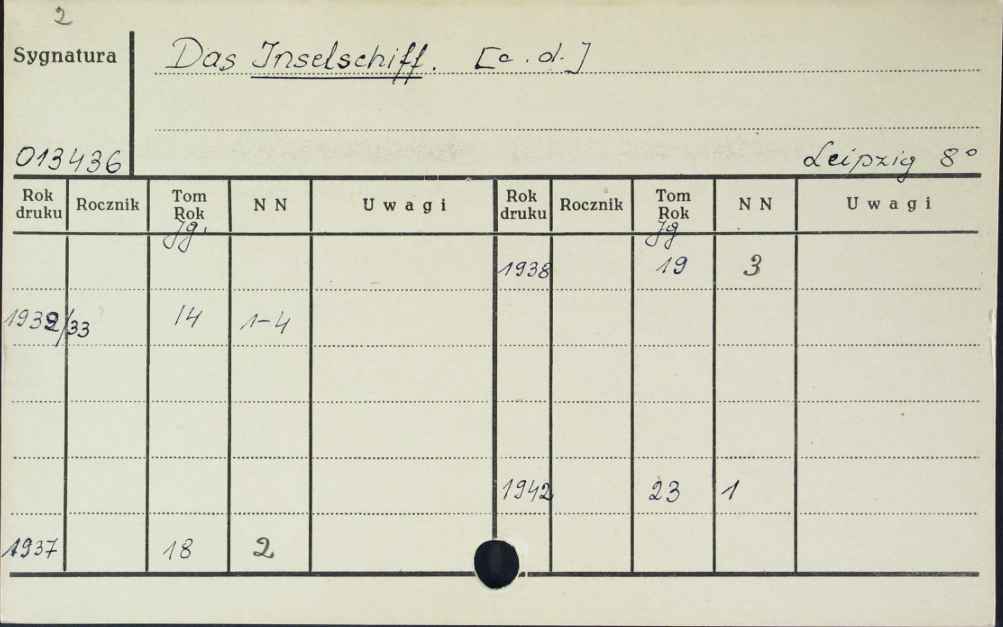 2
Sygnatura
Das Inselschiff. [c.d.]
013436
Leipzig 8°
Rok druku Rocznik Tom Rok NN Uwagi Rok druku Rocznik Tom Rok NN Uwagi
Jg. Jg
1938 19 3
1932/33 14 1-4
1942 23 1
1937 18 2